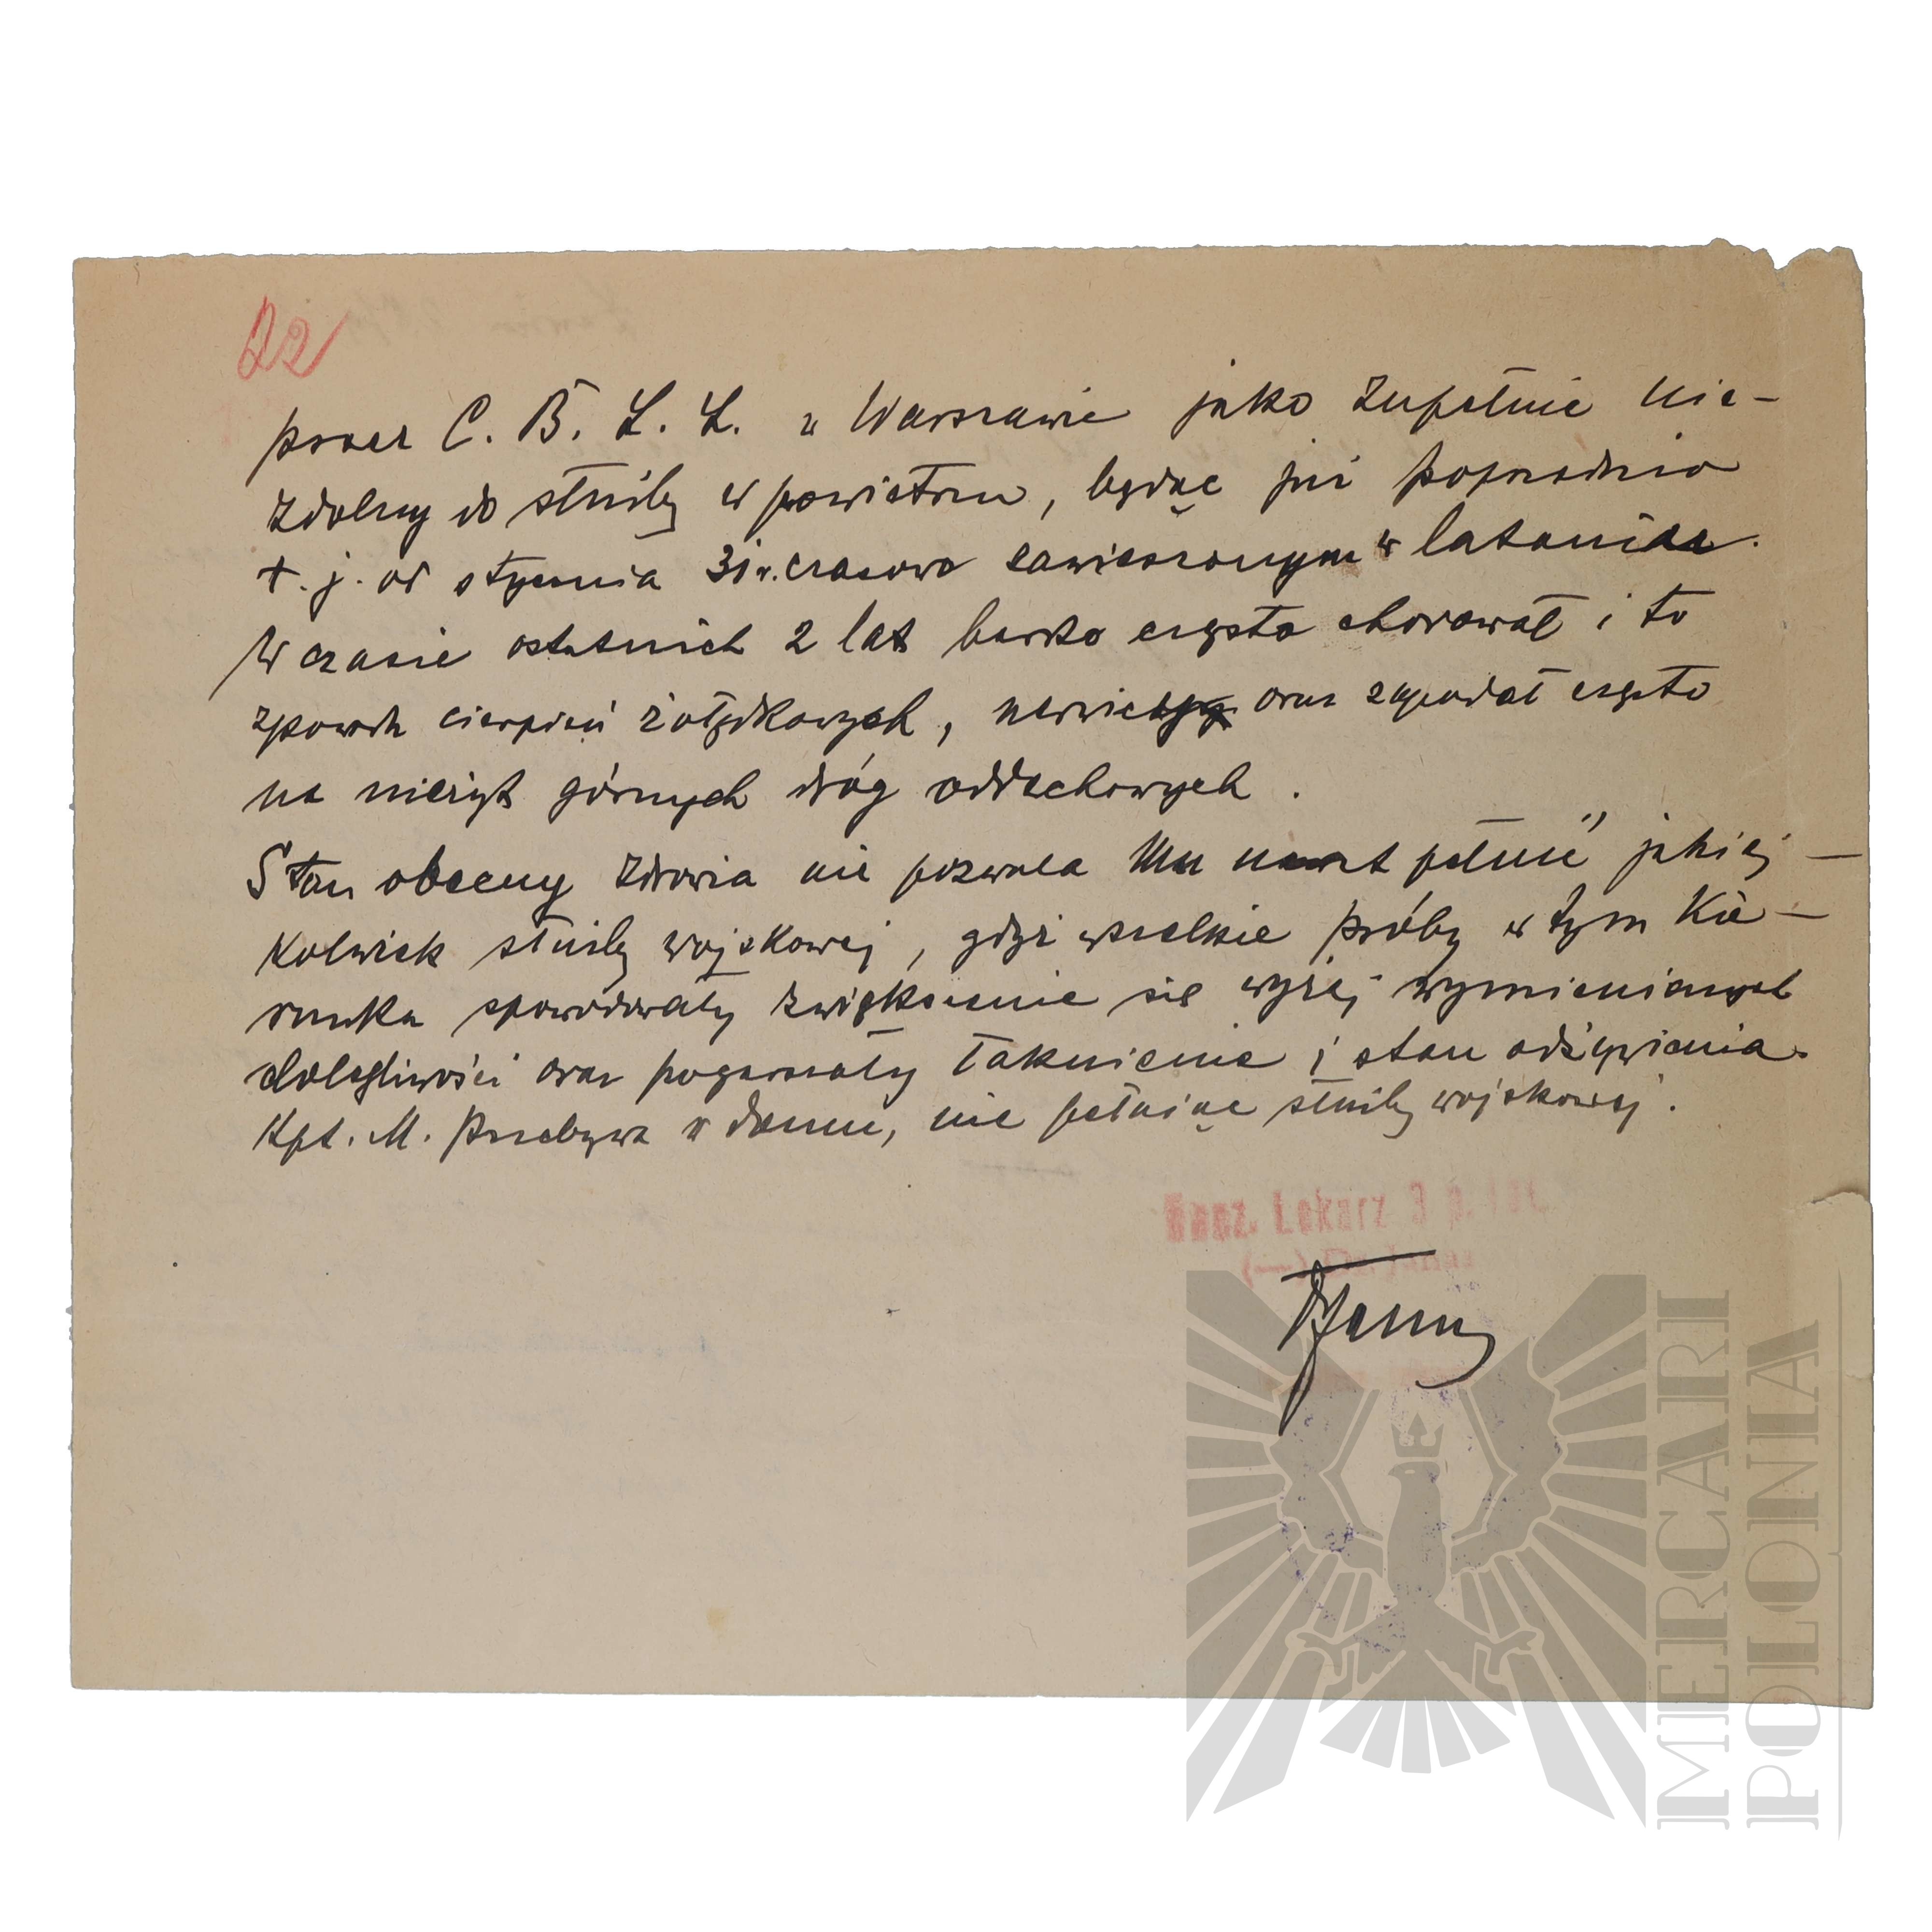 22
przez C. B. L. L. w Warszawie jako zupełnie nie-
zdolny do służby w powietrzu, będąc już poprzednio
t. j. od stycznia 31 r. czasowo zawieszonym w lataniu.
W czasie ostatnich 2 lat bardzo często chorował i to
z powodu cierpień żołądkowych, nerwicy oraz zapadał często
na nieżyt górnych dróg oddechowych.
Stan obecny zdrowia nie pozwala Mu nawet pełnić jakiej-
kolwiek służby wojskowej, gdyż wszelkie próby w tym kie-
runku spowodowały zwiększenie się wyżej wymienionych
dolegliwości oraz pogarszały łaknienie i stan odżywienia.
Kpt. M. przebywa w domu, nie pełniąc służby wojskowej.
Nacz. Lekarz 3 p. lot.
MERCARI
POLONIA